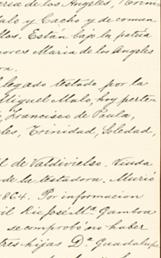 ria de los Angeles,
alo y Cacho y de comun
llos. Están bajo la patria
nores Maria de los Angeles
legado testado por la
Miguel Malo, hoy perten
Francisco de Paula,
les, Trinidad, Soledad,
il de Valdivielso. Viuda
de la testadora, Murió
1864. Por informacion
l Lic José Mª Gamboa
se comprobó no haber
tres hijas Dª Guadalupe